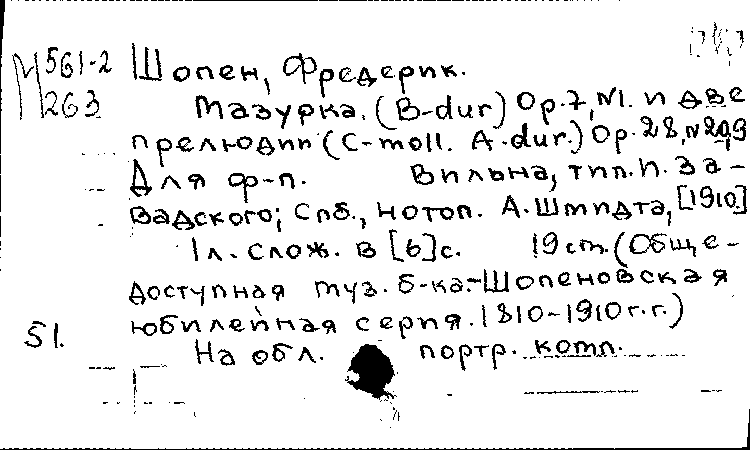 М 561-2
263
Шопен, Фредерик.
Мазурка. (B-dur) Op.7, N1. и две
прелюдии (C-moll. A-dur.) Op.28, N 20,9
Для ф-п. Вильна, тип. И. За-
вадского; Спб., нотоп. А. Шмидта, [1910]
1 л. слож. в [6] с. 19 cm. (Обще-
доступная муз. б-ка.-Шопеновская
юбилейная серия. 1810-1910 г.г.)
51.
На обл. портр. комп.